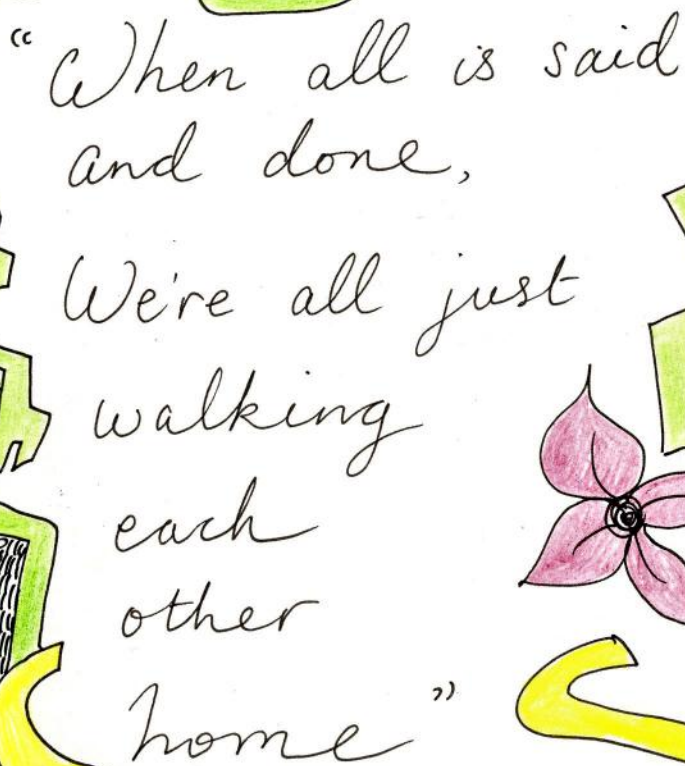 “When all is said
and done,
We're all just
walking
each
other
home”